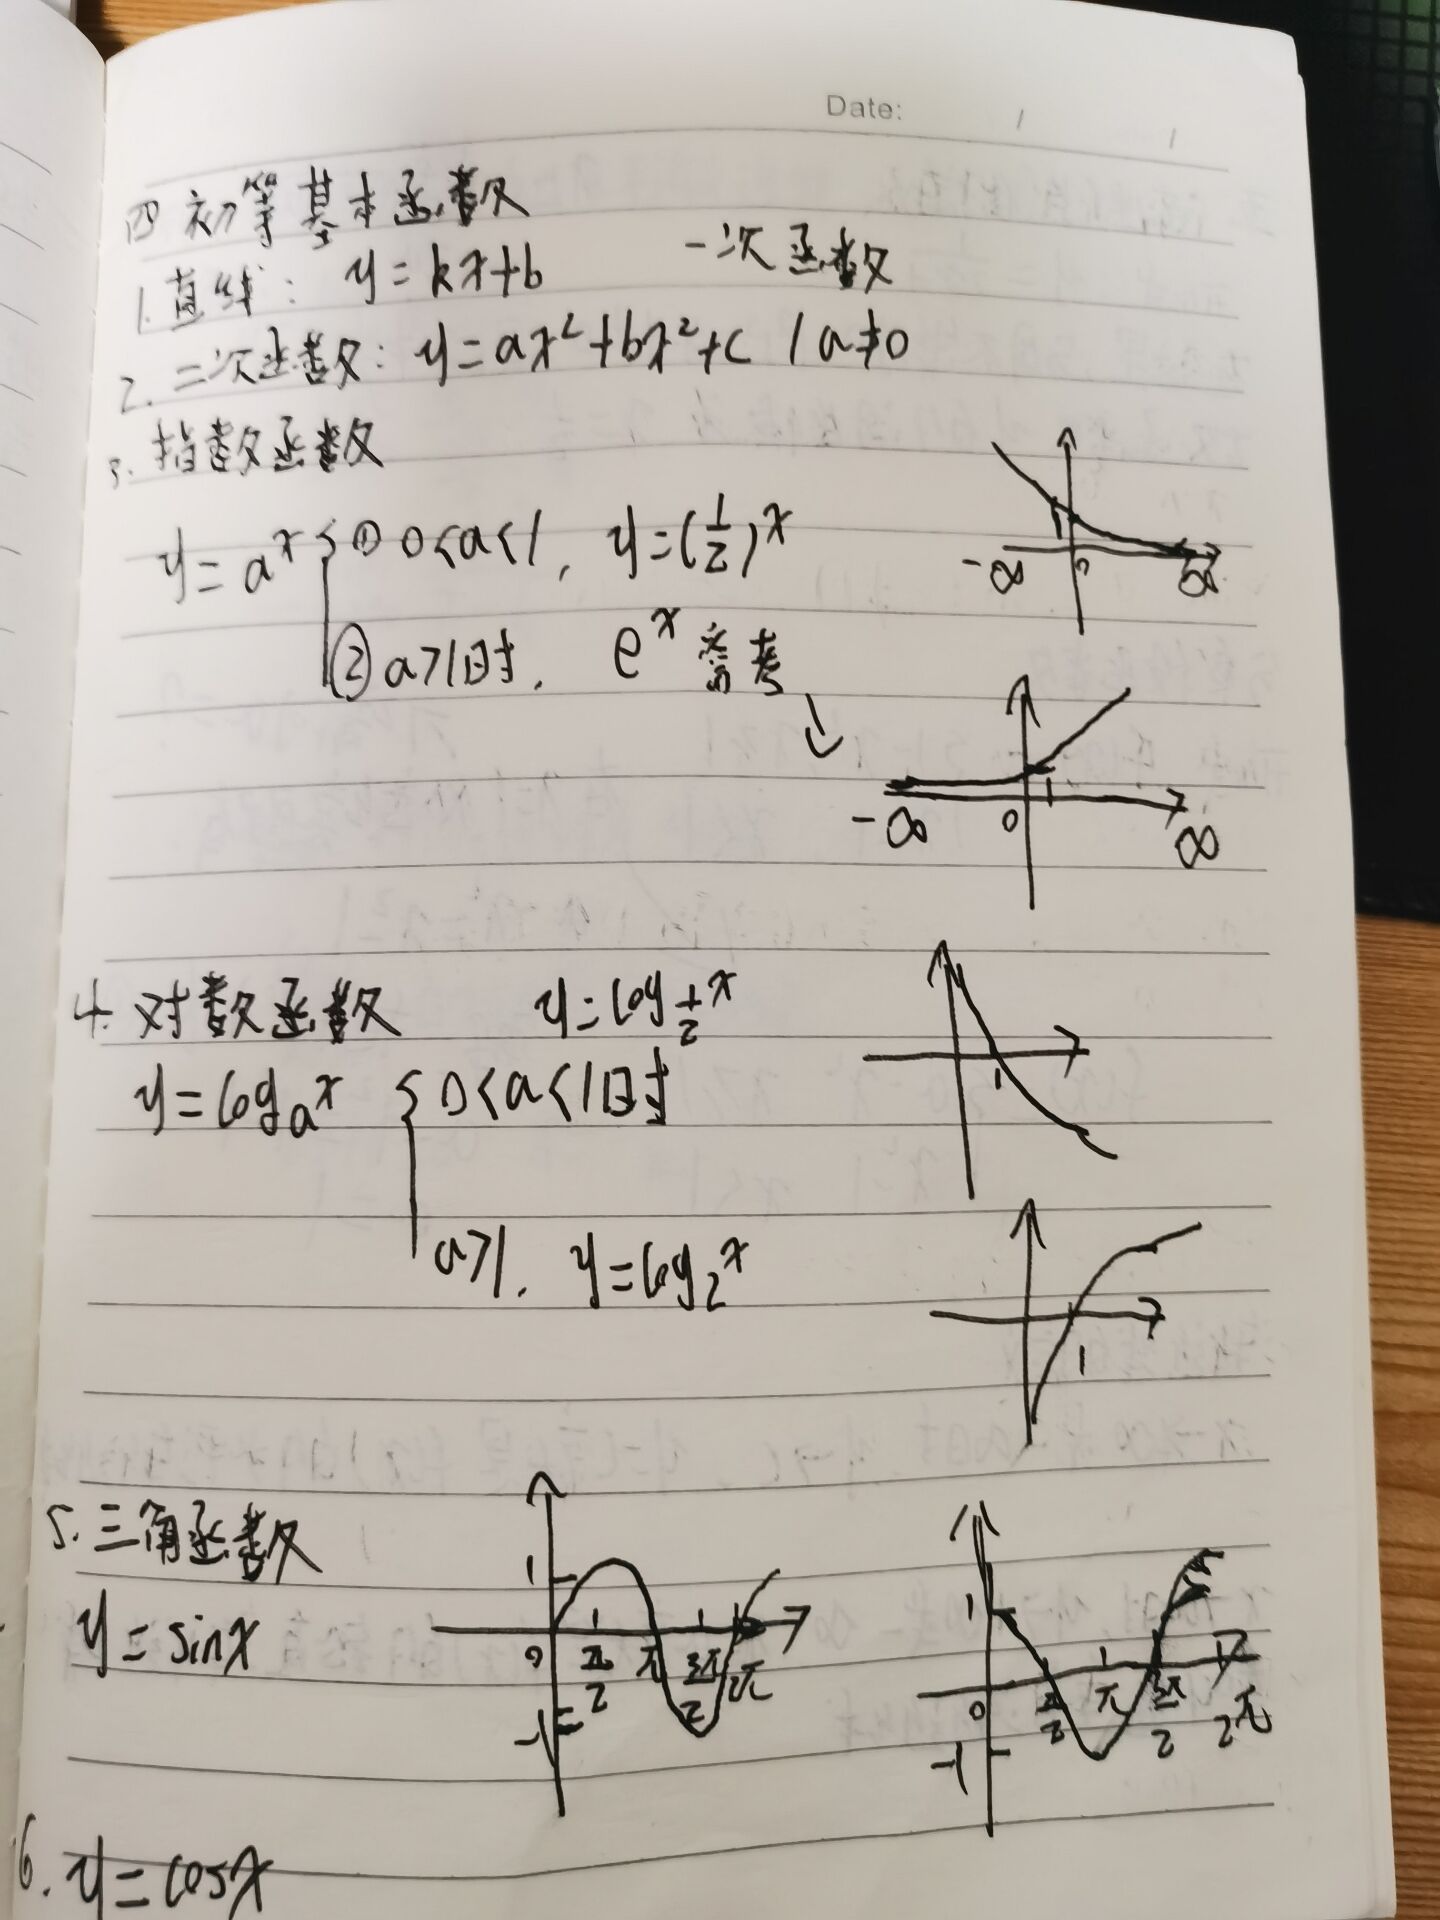 Date: / /
四 初等基本函数
1.直线: y=kx+b 一次函数
2.二次函数: y=ax²+bx²+c (a≠0
3.指数函数
1
-∞ 0 ∞
y=aˣ { ① 0<a<1, y=(1/2)ˣ
②a>1时, eˣ常考
1
-∞ 0 ∞
4.对数函数 y=log_{1/2}x
1
y=logₐx { 0<a<1时
a>1, y=log₂x
1
5.三角函数
y=sinx
1
0 π/2 π 3π/2 2π
-1
1
0 π/2 π 3π/2 2π
-1
6.y=cosx